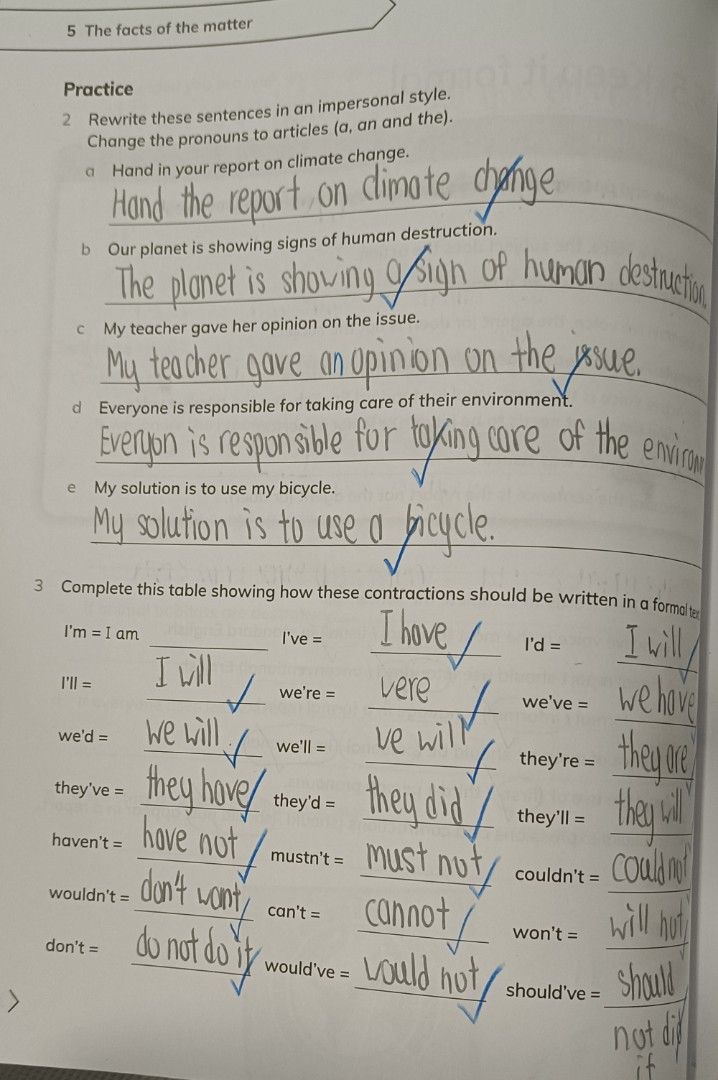 5 The facts of the matter
Practice
2 Rewrite these sentences in an impersonal style.
Change the pronouns to articles (a, an and the).
a Hand in your report on climate change.
Hand the report on climate change
b Our planet is showing signs of human destruction.
The planet is showing a sign of human destruction.
c My teacher gave her opinion on the issue.
My teacher gave an opinion on the issue.
d Everyone is responsible for taking care of their environment.
Everyon is responsible for taking care of the environ
e My solution is to use my bicycle.
My solution is to use a bicycle.
3 Complete this table showing how these contractions should be written in a formal tex
I'm = I am I've = I have I'd = I will
I'll = I will we're = vere we've = we have
we'd = we will we'll = ve will they're = they are
they've = they have they'd = they did they'll = they will
haven't = have not mustn't = must not couldn't = could not
wouldn't = don't want can't = cannot won't = will not
don't = do not do it would've = vould not should've = should
not dij
if